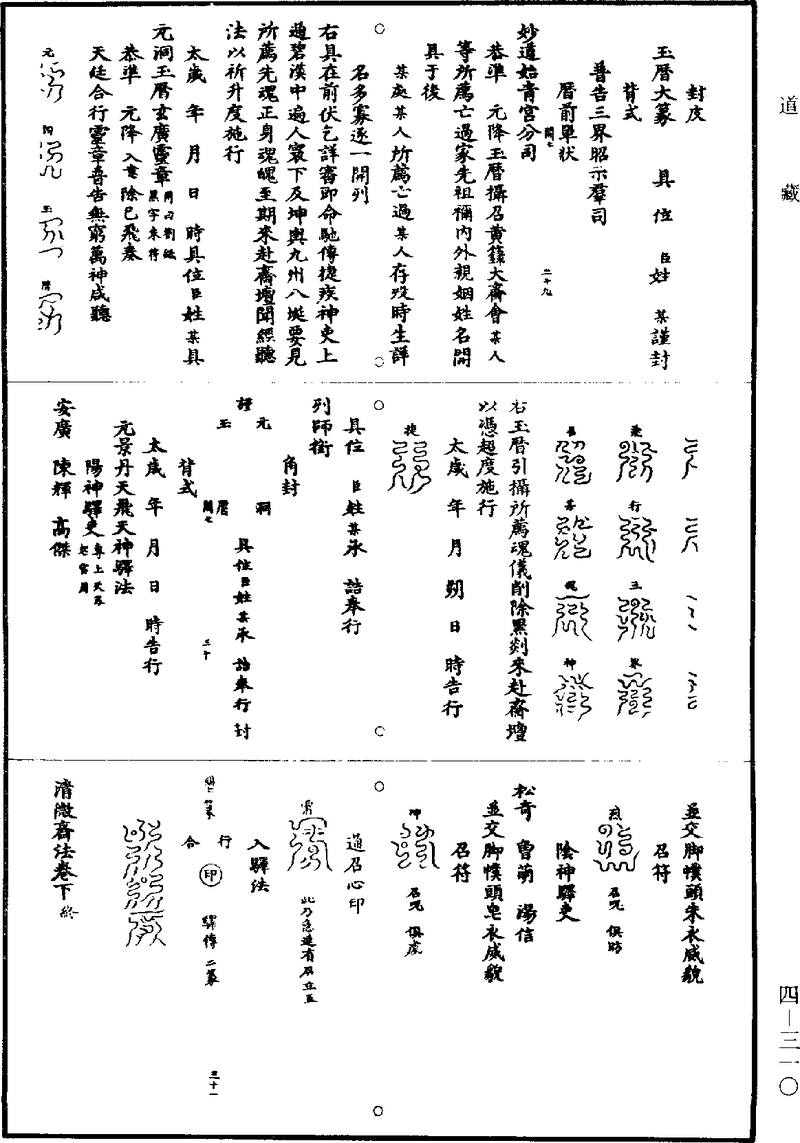 道藏
封皮
玉曆大篆　具位　臣姓　某謹封
背式
普告三界昭示羣司
曆前單狀
妙道始青宮分司
恭準　元降玉曆攝召黃籙大齋會某人
等所薦亡過家先祖禰內外親姻姓名開
具于後
某處某人所薦亡過某人存歿時生詳
名多寡逐一開列
右具在前伏乞詳審即命馳傳捷疾神吏上
過碧漢中遍人寰下及坤輿九州八埏要見
所薦先魂正身魂魄至期來赴齋壇聞經聽
法以祈升度施行
太歲　年　月　日　時具位臣姓某具
元洞玉曆玄廣靈章
恭準　元降入意除已飛奏
天廷合行靈章普告無窮萬神咸聽
元　洞　玉　曆
乘　行　玉　界
神
右玉曆引攝所薦魂儀削除黑刻來赴齋壇
以憑超度施行
太歲　年　月　朔　日　時告行
捷
具位　臣姓某承　誥奉行
列師銜
角封
謹　元　洞
玉　曆
具位臣姓某承　誥奉行封
三十
背式
太歲　年　月　日　時告行
元景丹天飛天神驛法
陽神驛吏
安廣　陳輝　高傑
並交脚幞頭朱衣威貌
召符
陰神驛吏
松奇　曾萌　湯信
並交脚幞頭皂衣威貌
召符
召咒　俱處
通召心印
入驛法
合　行　印　驛傳二篆
三十一
清微齋法卷下　終
四—三一〇